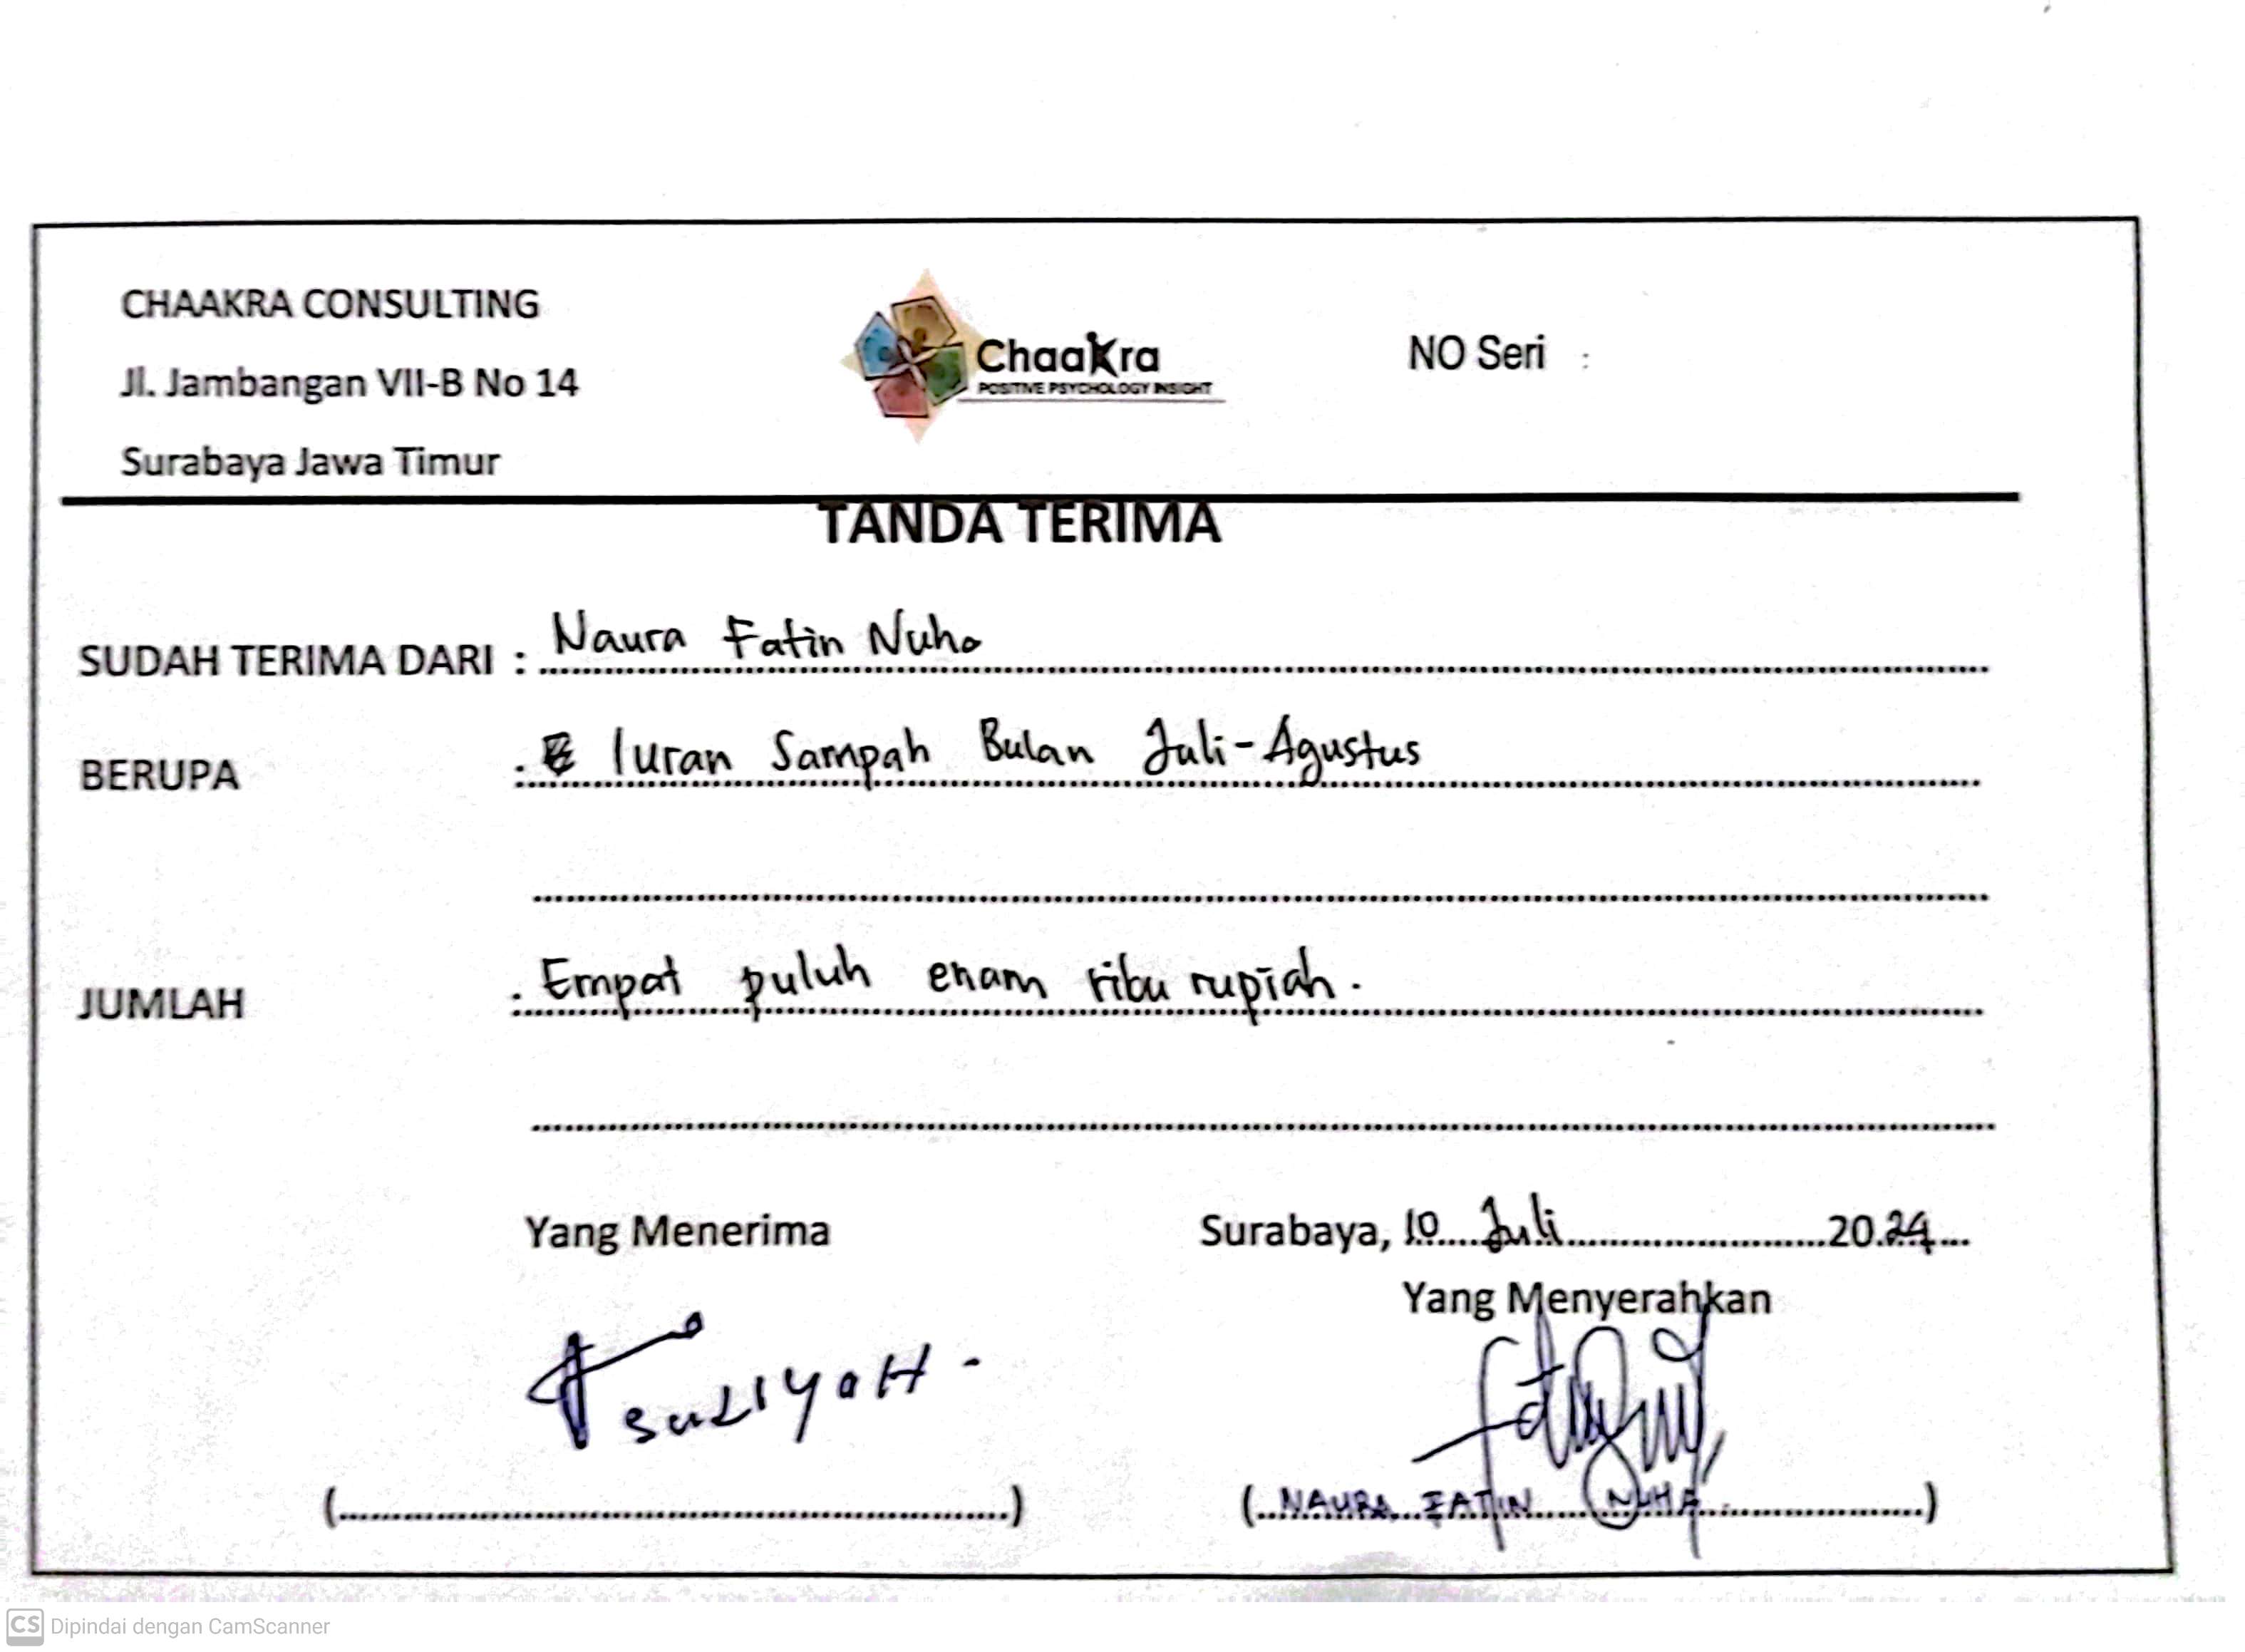 CHAAKRA CONSULTING
Jl. Jambangan VII-B No 14
Surabaya Jawa Timur
ChaaKra
POSITIVE PSYCHOLOGY INSIGHT
NO Seri :
TANDA TERIMA
SUDAH TERIMA DARI : Naura Fatin Nuha
BERUPA : Iuran Sampah Bulan Juli-Agustus
JUMLAH : Empat puluh enam ribu rupiah.
Yang Menerima
Surabaya, 10 Juli 2024
Yang Menyerahkan
(NAURA FATIN NUHA)
CS Dipindai dengan CamScanner